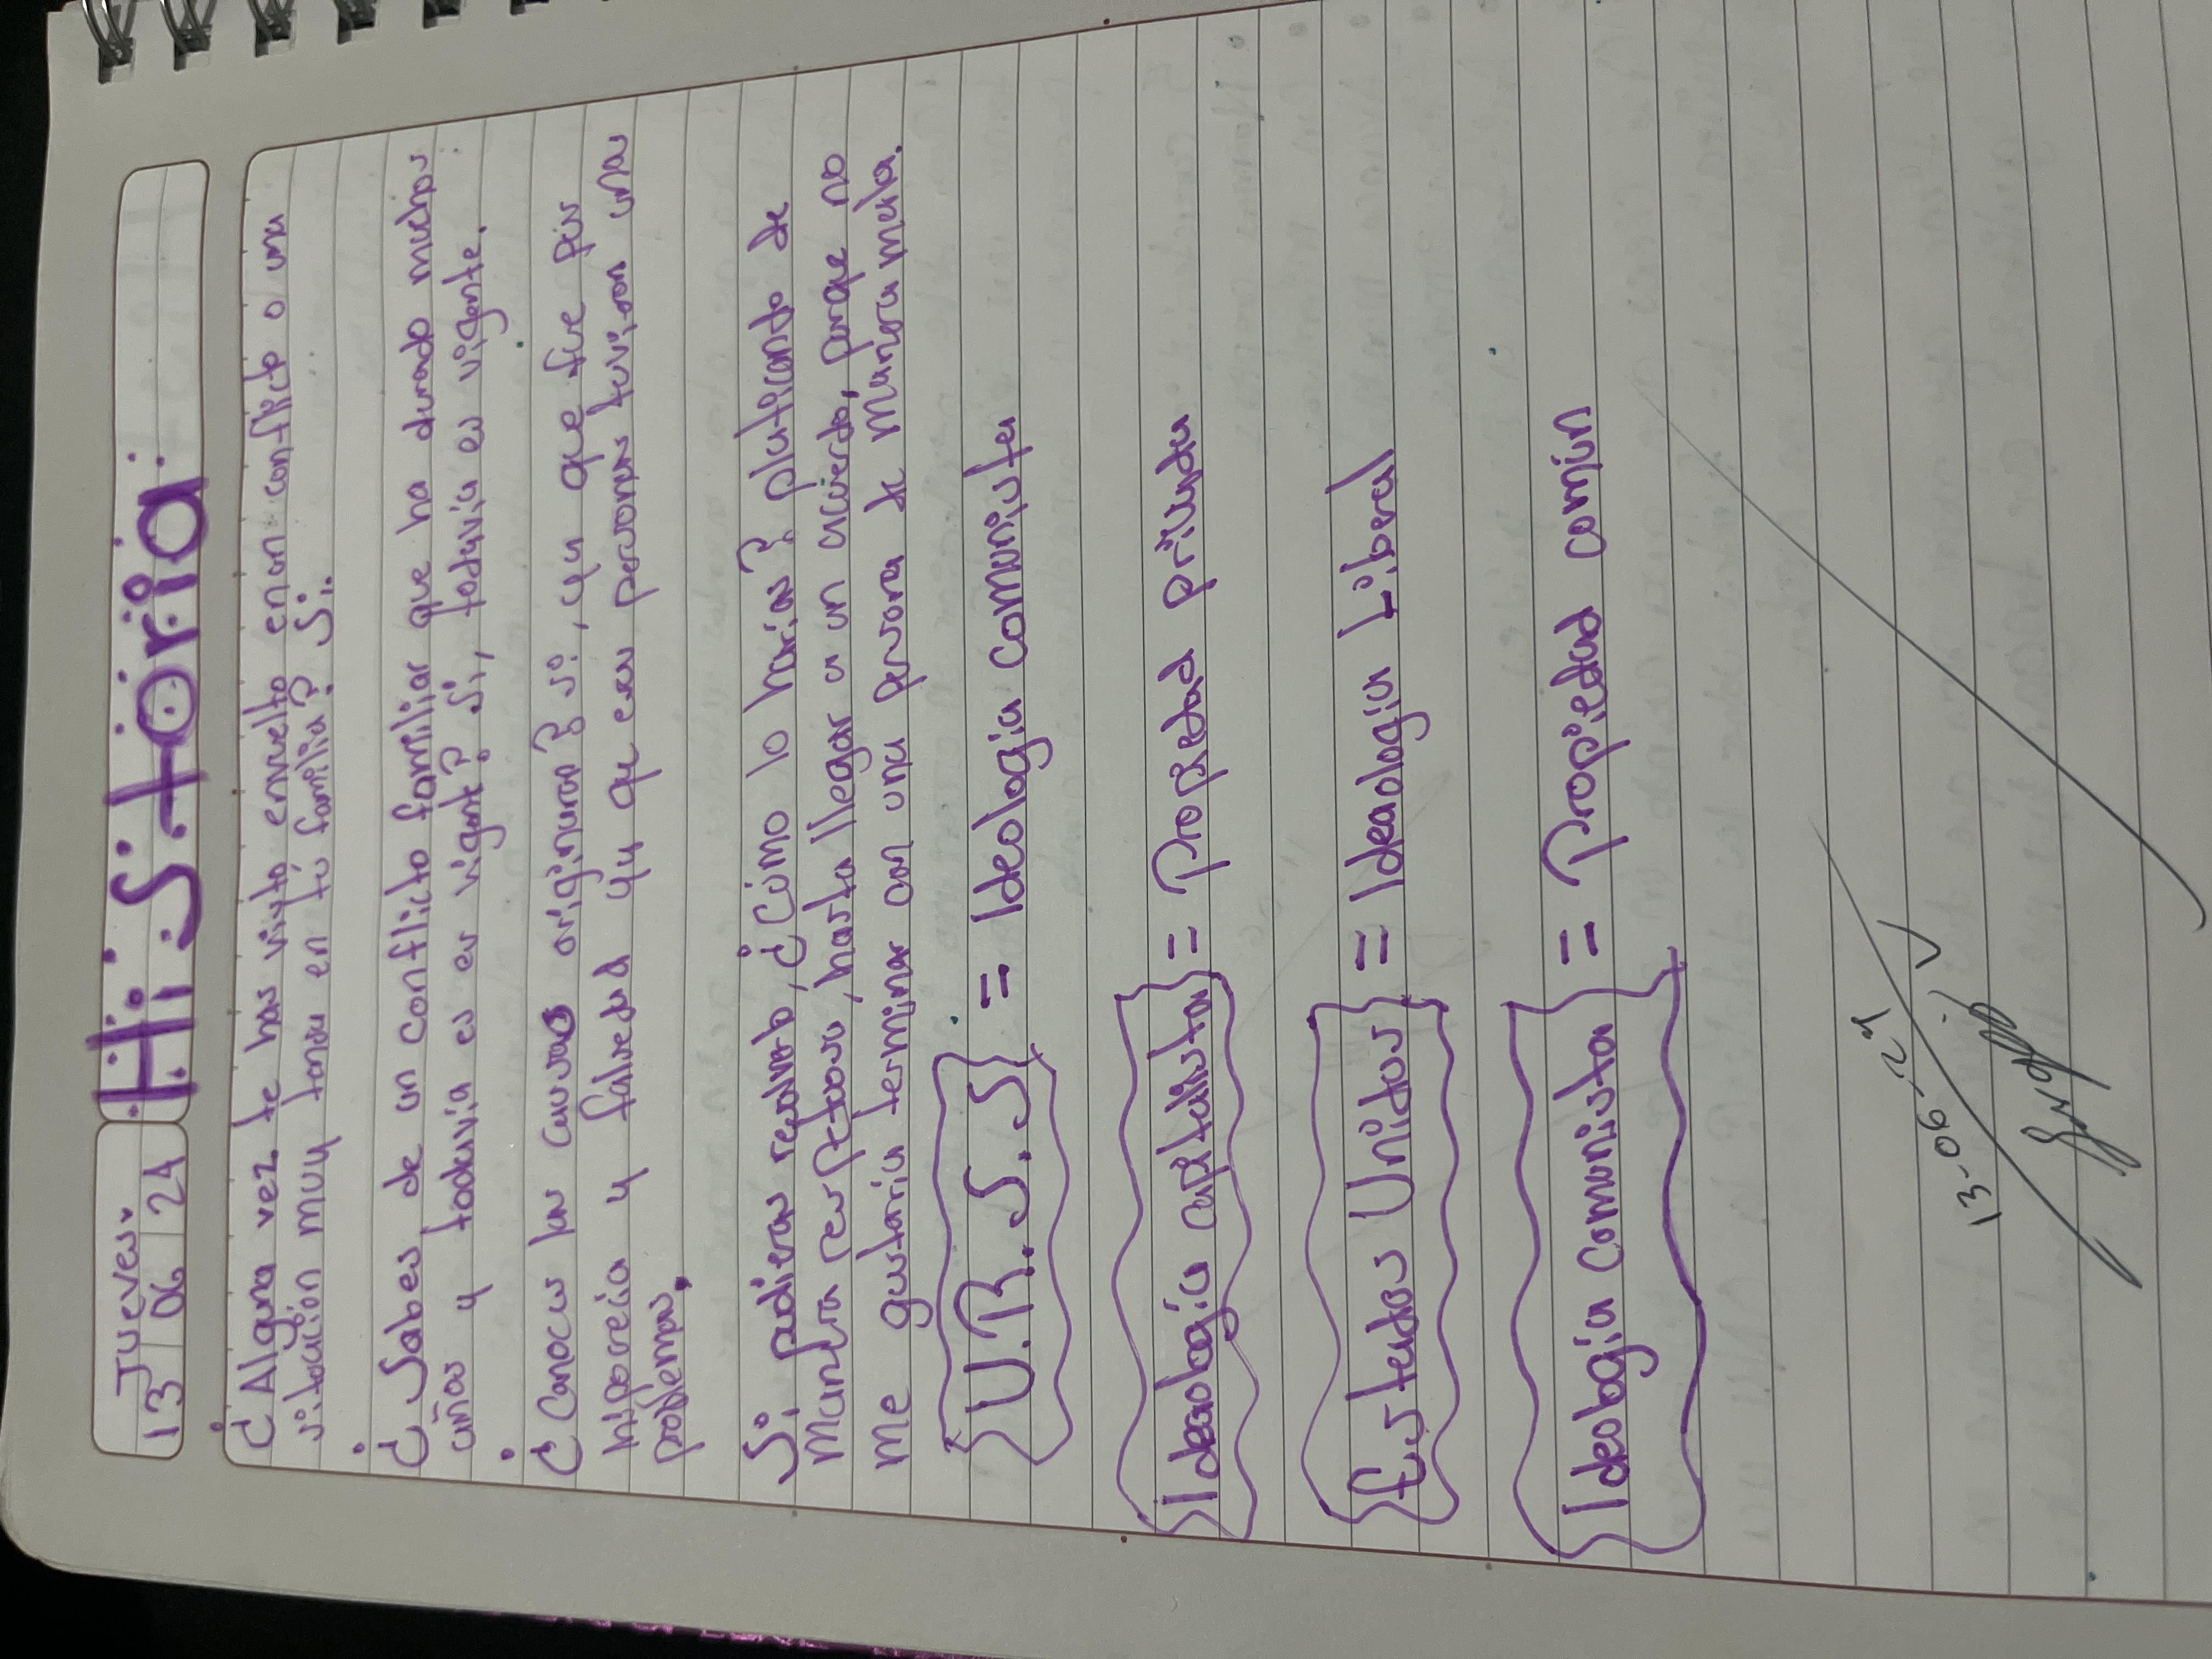 Jueves
13 06 24
Historia
¿Alguna vez te has visto envuelto en un conflicto o una
situación muy tensa en tú familia? Si.
¿Sabes de un conflicto familiar que ha durado muchos
años y todavía es es vigente? Si, todavia es vigente.
¿Conoces las causas originaras? si, ya que fue por
hipocrecia y falsedad ya que esas personas tuvieron unos
problemas.
Si pudieras resolverlo, ¿Cómo lo harías? platicando de
manera respetuosa, hasta llegar a un acuerdo, porque no
me gustaría terminar con una persona de manera mala.
U.R.S.S = Ideologia comunista
Ideología capitalista = Propiedad privada
Estados Unidos = Ideología Liberal
Ideología comunista = Propiedad común
13-06-24